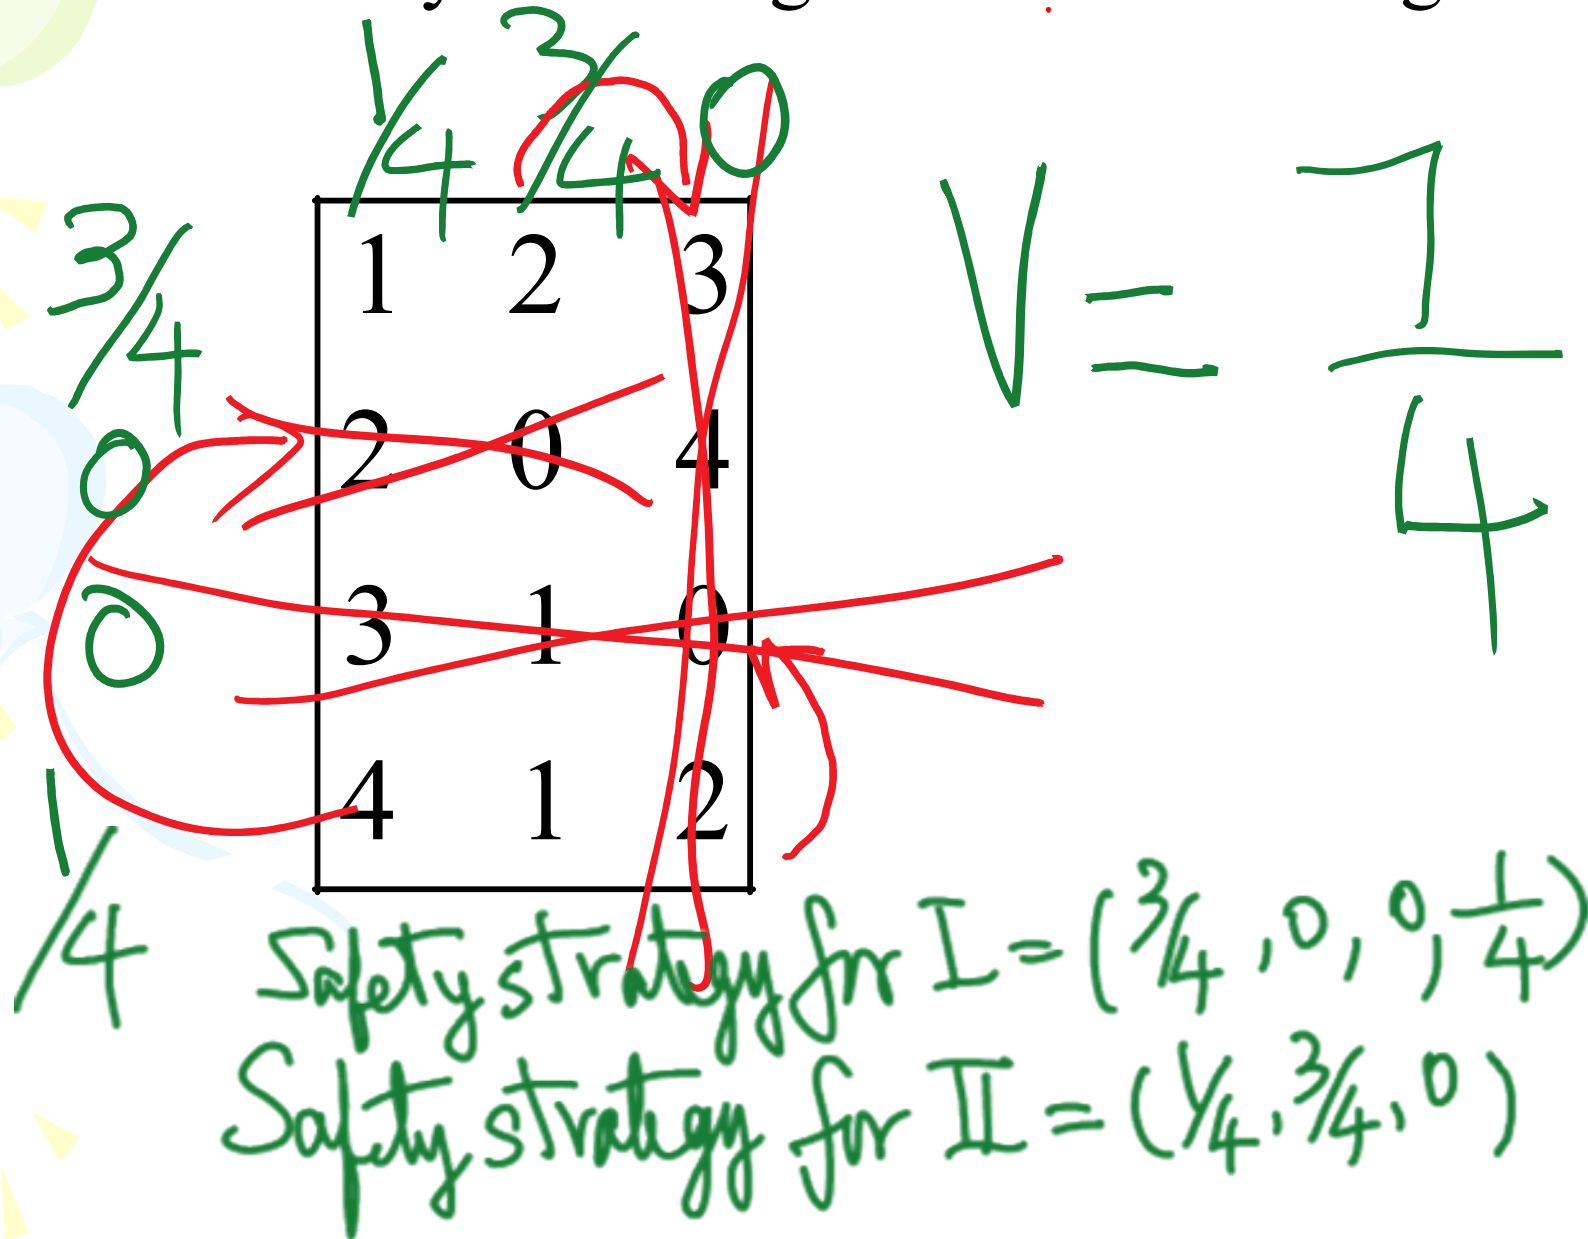 1/4 3/4 0
3/4 1 2 3
0 2 0 4
0 3 1 0
1/4 4 1 2
V = 7/4
Safety strategy for I = (3/4, 0, 0, 1/4)
Safty strategy for II = (1/4, 3/4, 0)